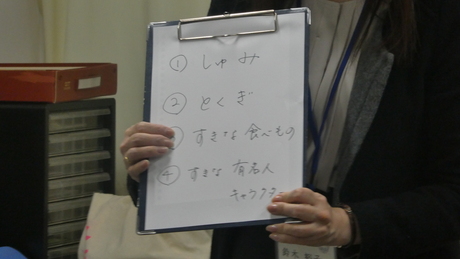 ① しゅみ
② とくぎ
③ すきな食べもの
④ すきな 有名人
キャラクター
鈴木